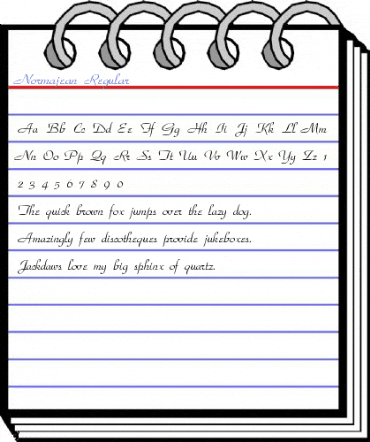 Normajean Regular
Aa Bb Cc Dd Ee Ff Gg Hh Ii Jj Kk Ll Mm
Nn Oo Pp Qq Rr Ss Tt Uu Vv Ww Xx Yy Zz 1
2 3 4 5 6 7 8 9 0
The quick brown fox jumps over the lazy dog.
Amazingly few discotheques provide jukeboxes.
Jackdaws love my big sphinx of quartz.